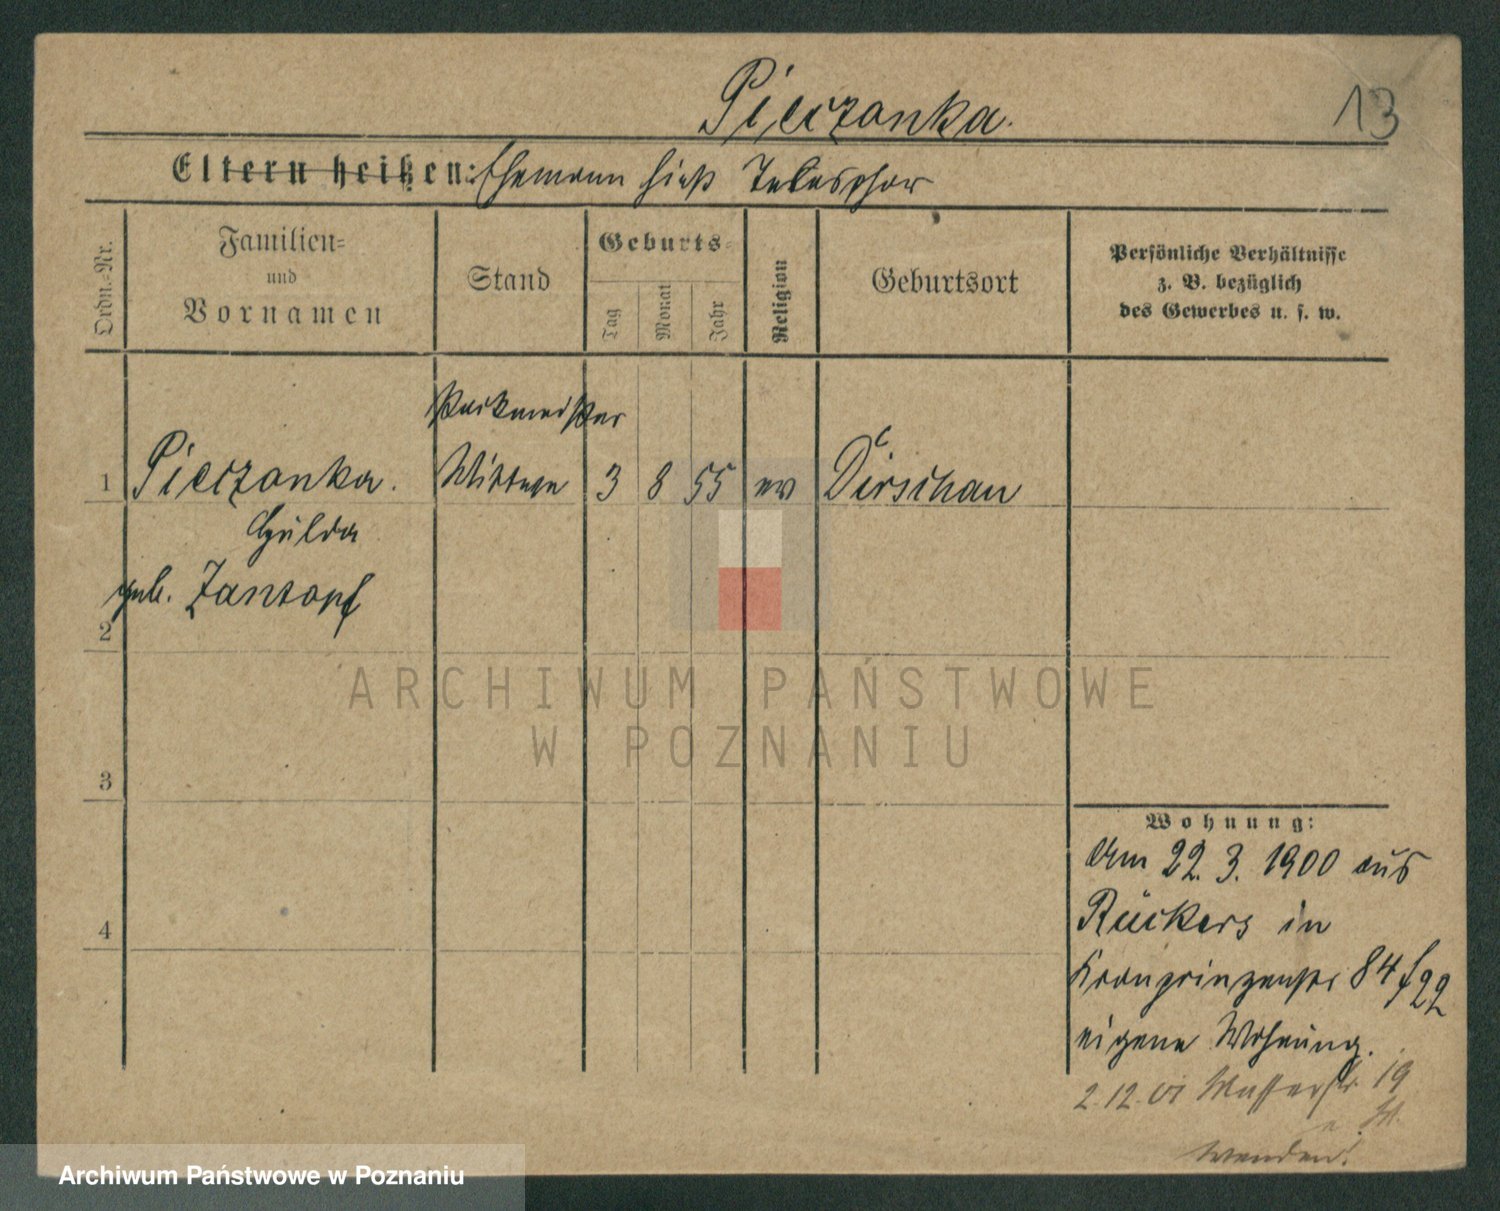 Pieczonka.
13
Eltern heißen: Ehemann hieß Telesphor
Ordn.-Nr.
Familien-
und
Vornamen
Stand
Geburts-
Tag
Monat
Jahr
Religion
Geburtsort
Persönliche Verhältnisse
z. B. bezüglich
des Gewerbes u. s. w.
Packmeister
1 Pieczonka. Wittwe 3 8 55 ev Dirschau
Hulda
geb. Zantopf
2
ARCHIWUM PAŃSTWOWE
W POZNANIU
3
Wohnung:
Am 22. 3. 1900 aus
Rückers in
4
Kronprinzenstr 84 f 22
eigene Wohnung.
2.12.01 Wasserstr 19
Wenden!
Archiwum Państwowe w Poznaniu